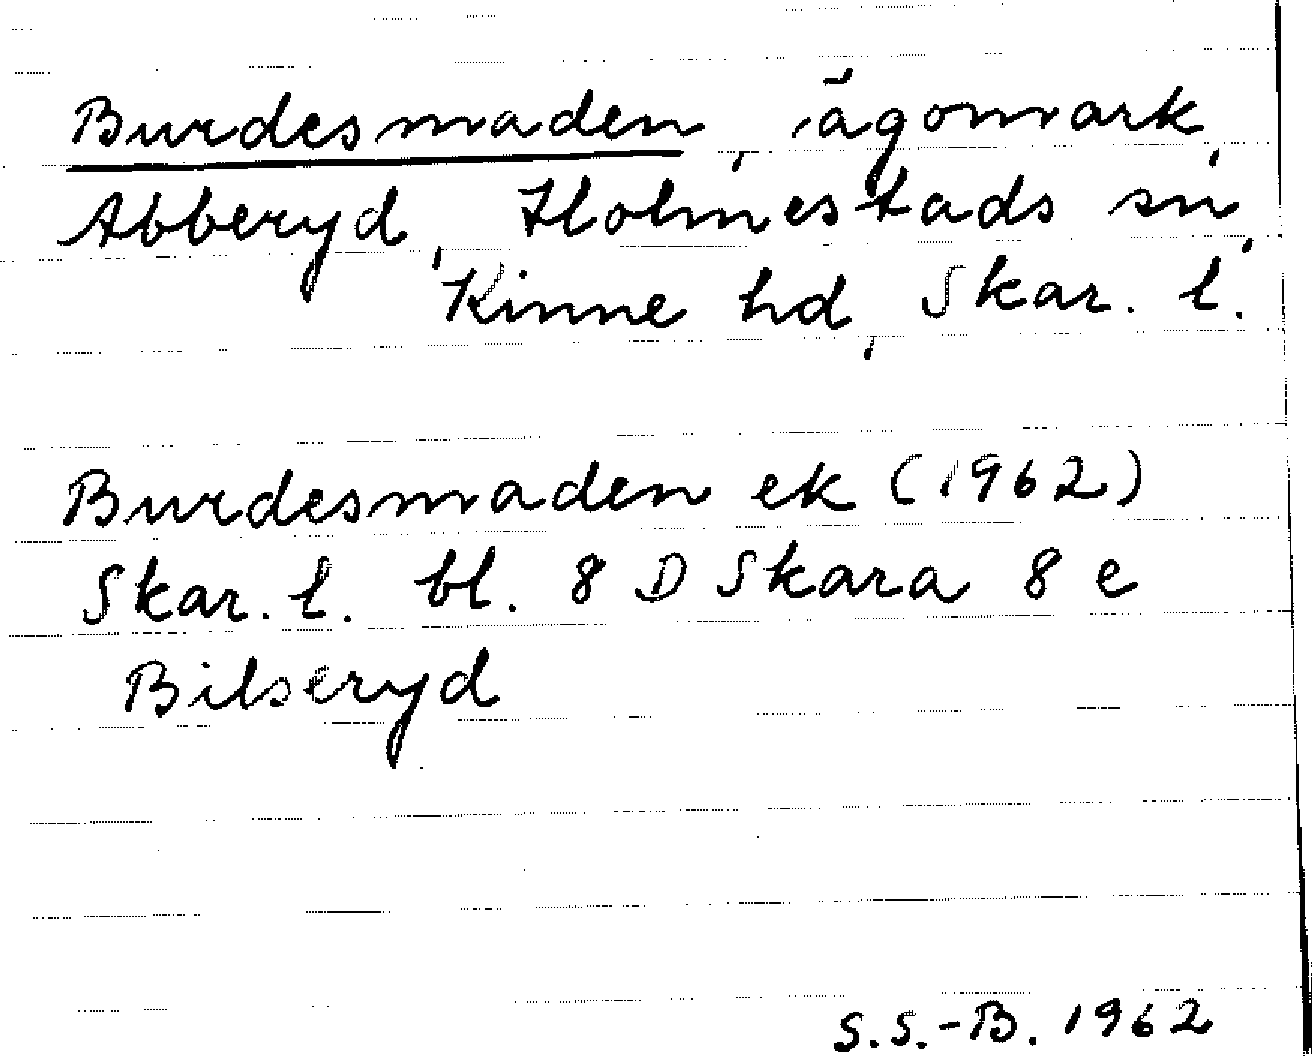 Burdesmaden, ägomark,
Abberyd, Holmestads sn,
Kinne hd, Skar. l.
Burdesmaden ek (1962)
Skar. l. bl. 8 D Skara 8 e
Bilseryd
S.S.-B. 1962